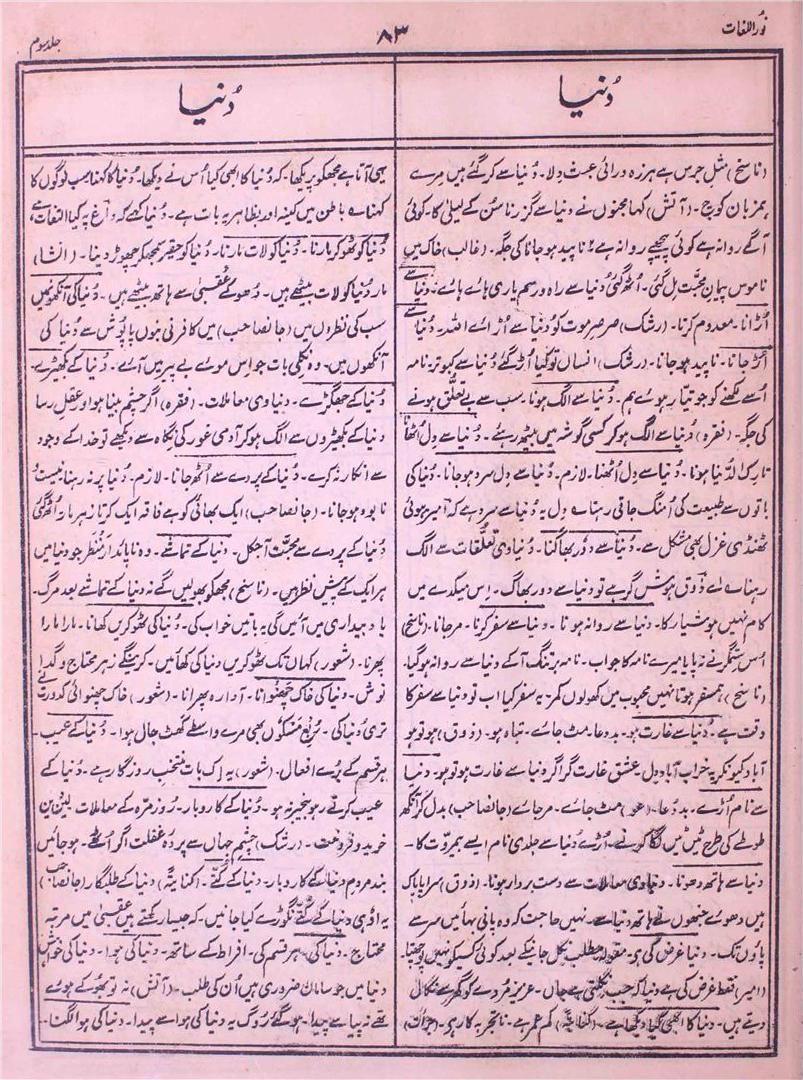 نُور اللغات
۸۳
جلد سوم
دُنیا
(ناسخ) مثل جرس ہے ہرزہ درائی عبث دِلا۔ دُنیا سے کر گئے ہیں مرے
ہمزباں کوچ۔ (آتش) کہا مجنوں نے دنیا سے گزرنا سُن کے لیلیٰ کا۔ کوئی
آگے روانہ ہے کوئی پیچھے روانہ ہے ؛ ناپید ہو جانا کی جگہ۔ (غالب) خاک میں
ناموس پیمانِ محبّت مِل گئی۔ اُٹھ گئی دُنیا سے راہ و رسم یاری ہائے ہائے۔ دُنیا سے
اُڑانا۔ معدوم کرنا۔ (رشک) صرصرِ موت کو دُنیا سے اُڑائے اللہ۔ دُنیا سے
اُڑ جانا۔ ناپید ہو جانا۔ (رشک) انساں تو کیا اُڑ گئے دُنیا سے کبوتر۔ نامہ
اُسے لکھنے کو جو تیار ہوئے ہم۔ دُنیا سے الگ ہونا۔ سب سے بے تعلق ہونے
کی جگہ۔ (فقرہ) دُنیا سے الگ ہو کر کسی گوشہ میں بیٹھ رہئے۔ دُنیا سے دل اُٹھانا
تارک الدُّنیا ہونا۔ دُنیا سے دل اُٹھنا۔ لازم۔ دُنیا سے دل سرد ہو جانا۔ دُنیا کی
باتوں سے طبیعت کی اُمنگ جاتی رہنا۔ دل یہ دُنیا سے سرد ہے کہ امیر۔ ہوئی
ٹھنڈی غزل بھی مشکل سے۔ دُنیا سے دور بھاگنا۔ دُنیاوی تعلّقات سے الگ
رہنا۔ اے ذوق ہوش گر ہے تو دنیا سے دور بھاگ۔ اِس میکدے میں
کام نہیں ہوشیار کا۔ دُنیا سے روانہ ہونا۔ دنیا سے سفر کرنا۔ مرجانا۔ (ناسخ)
اُس ستمگر نے نہ پایا میرے نامہ کا جواب۔ نامہ بر تنگ آکے دُنیا سے روانہ ہو گیا۔
(ناسخ) ہمسفر ہوتا نہیں محبوب میں کھولوں کمر۔ یہ سفر کیا اب تو دنیا سے سفر کا
وقت ہے۔ دُنیا سے غارت ہو۔ بددعا۔ مٹ جائے۔ تباہ ہو۔ (ذوق) ہو تو ہو
آباد کیونکر یہ خراب آبادِ دل۔ عشق غارت گر اگر دُنیا سے غارت ہو تو ہو۔ دنیا
سے نام اُڑے۔ بددُعا۔ (عو) مٹ جائے۔ مر جائے (جانصاحب) بدل کر آنکھ
طوطے کی طرح ٹیں ٹیں لگا کرنے۔ اُڑے دُنیا سے جلدی نام ایسے بیمروّت کا۔
دنیا سے ہاتھ دھونا۔ دنیاوی معاملات سے دست بردار ہونا۔ (ذوق) سراپا پاک
ہیں دھوئے جنھوں نے ہاتھ دنیا سے۔ نہیں حاجت کہ وہ پانی بہائیں سر سے
پاؤں تک۔ دنیا غرض کی ہے۔ مقولہ۔ مطلب نکل جانیکے بعد کوئی کسیکو نہیں پوچھتا۔
(امیر) فقط غرض کی ہے دنیا کہ جب نکلتی ہے جاں۔ عزیز مُردے کو گھر سے نکال
دیتے ہیں۔ دُنیا کا ابھی کیا دیکھا ہے۔ (کنایۃً) کم عمر ہے۔ ناتجربہ کار ہے۔ (جرأت)
دُنیا
یہی آتا ہے مجھکو ریکھا۔ کہ دُنیا کا ابھی کیا اُس نے دیکھا۔ دُنیا کا کہنا۔ سب لوگوں کا
کہنا۔ باطن میں کینہ اور بظاہر یہ بات ہے۔ دُنیا کہے کہ داغ پہ کیا التفات ہے
دُنیا کو ٹھوکر مارنا۔ دُنیا کو لات مارنا۔ دُنیا کو حقیر سمجھکر چھوڑ دینا۔ (انشا)
مار دُنیا کو لات بیٹھے ہیں۔ دھو کے عُقبیٰ سے ہاتھ بیٹھے ہیں۔ دُنیا کی آنکھوں میں
سب کی نظروں میں (جانصاحب) میں کافرنی ہوں پاپوش سے دُنیا کی
آنکھوں میں۔ وہ نکلی بات جو اِس موئے بے پیر میں آئے۔ دُنیا کے بکھیڑے۔
دُنیا کے جھگڑے۔ دنیاوی معاملات۔ (فقرہ) اگر چشم بینا ہو اور عقل رسا
دنیا کے بکھیڑوں سے الگ ہو کر آدمی غور کی نگاہ سے دیکھے تو خدا کے وجود
سے انکار نہ کرے۔ دُنیا کے پردے سے اُٹھ جانا۔ لازم۔ دُنیا پر نہ رہنا۔ نیست
نابود ہو جانا۔ (جانصاحب) ایک بھائی کو ہے فاقہ ایک کرتا زہر مار۔ اُٹھ گئی
دُنیا کے پردے سے محبّت آجکل۔ دنیا کے تماشے۔ وہ ناپائدار منظر جو دنیا میں
ہر ایک کے پیش نظر ہیں۔ (ناسخ) مجھکو بھولیں گے نہ دُنیا کے تماشے بعد مرگ۔
یاد بیداری میں آئیں گی یہ باتیں خواب کی۔ دُنیا کی ٹھوکریں کھانا۔ مارا مارا
پھرنا۔ (شعور) کہاں تک ٹھوکریں دنیا کی کھائیں۔ کرینگے زہر محتاج و گدا
نوش۔ دنیا کی خاک چھنوانا۔ آوارہ پھرانا۔ (شعور) خاک چھنوائی کدورت نے
تری دُنیا کی۔ رُبعِ مسکوں بھی مرے واسطے گھٹ جال ہوا۔ دُنیا کے عیب۔
ہر قسم کے بُرے افعال۔ (شعور) یہ اِک بات منتخب روزگار ہے۔ دُنیا کے
عیب کرتے رہو بے خبر نہ ہو۔ دُنیا کے کاروبار۔ روزمرّہ کے معاملات۔ لین دین
خرید و فروخت۔ (رشک) چشمِ جہاں سے پردۂ غفلت اگر اُٹھے۔ ہو جائیں
بند مردمِ دنیا کے کاروبار۔ دُنیا کے کُتّے۔ (کنایۃً) دُنیا کے طلبگار (جانصاحب)
یہ آدمی دنیا کے کُتّے نگوڑے کیا جانیں۔ کہ جیسا رکھتے ہیں عقبیٰ میں مرتبہ
محتاج۔ دُنیا کی۔ ہر قسم کی۔ افراط کے ساتھ۔ دنیا کی ہوا۔ دُنیا کی خواہش
دنیا میں جو سامان ضروری ہیں اُن کی طلب۔ (آتش) نہ تو بھوکے ہوئے
تھے نہ پیاسے پیدا۔ ہو گئے روگ یہ دنیا کی ہوا سے پیدا۔ دُنیا کی ہوا لگنا۔